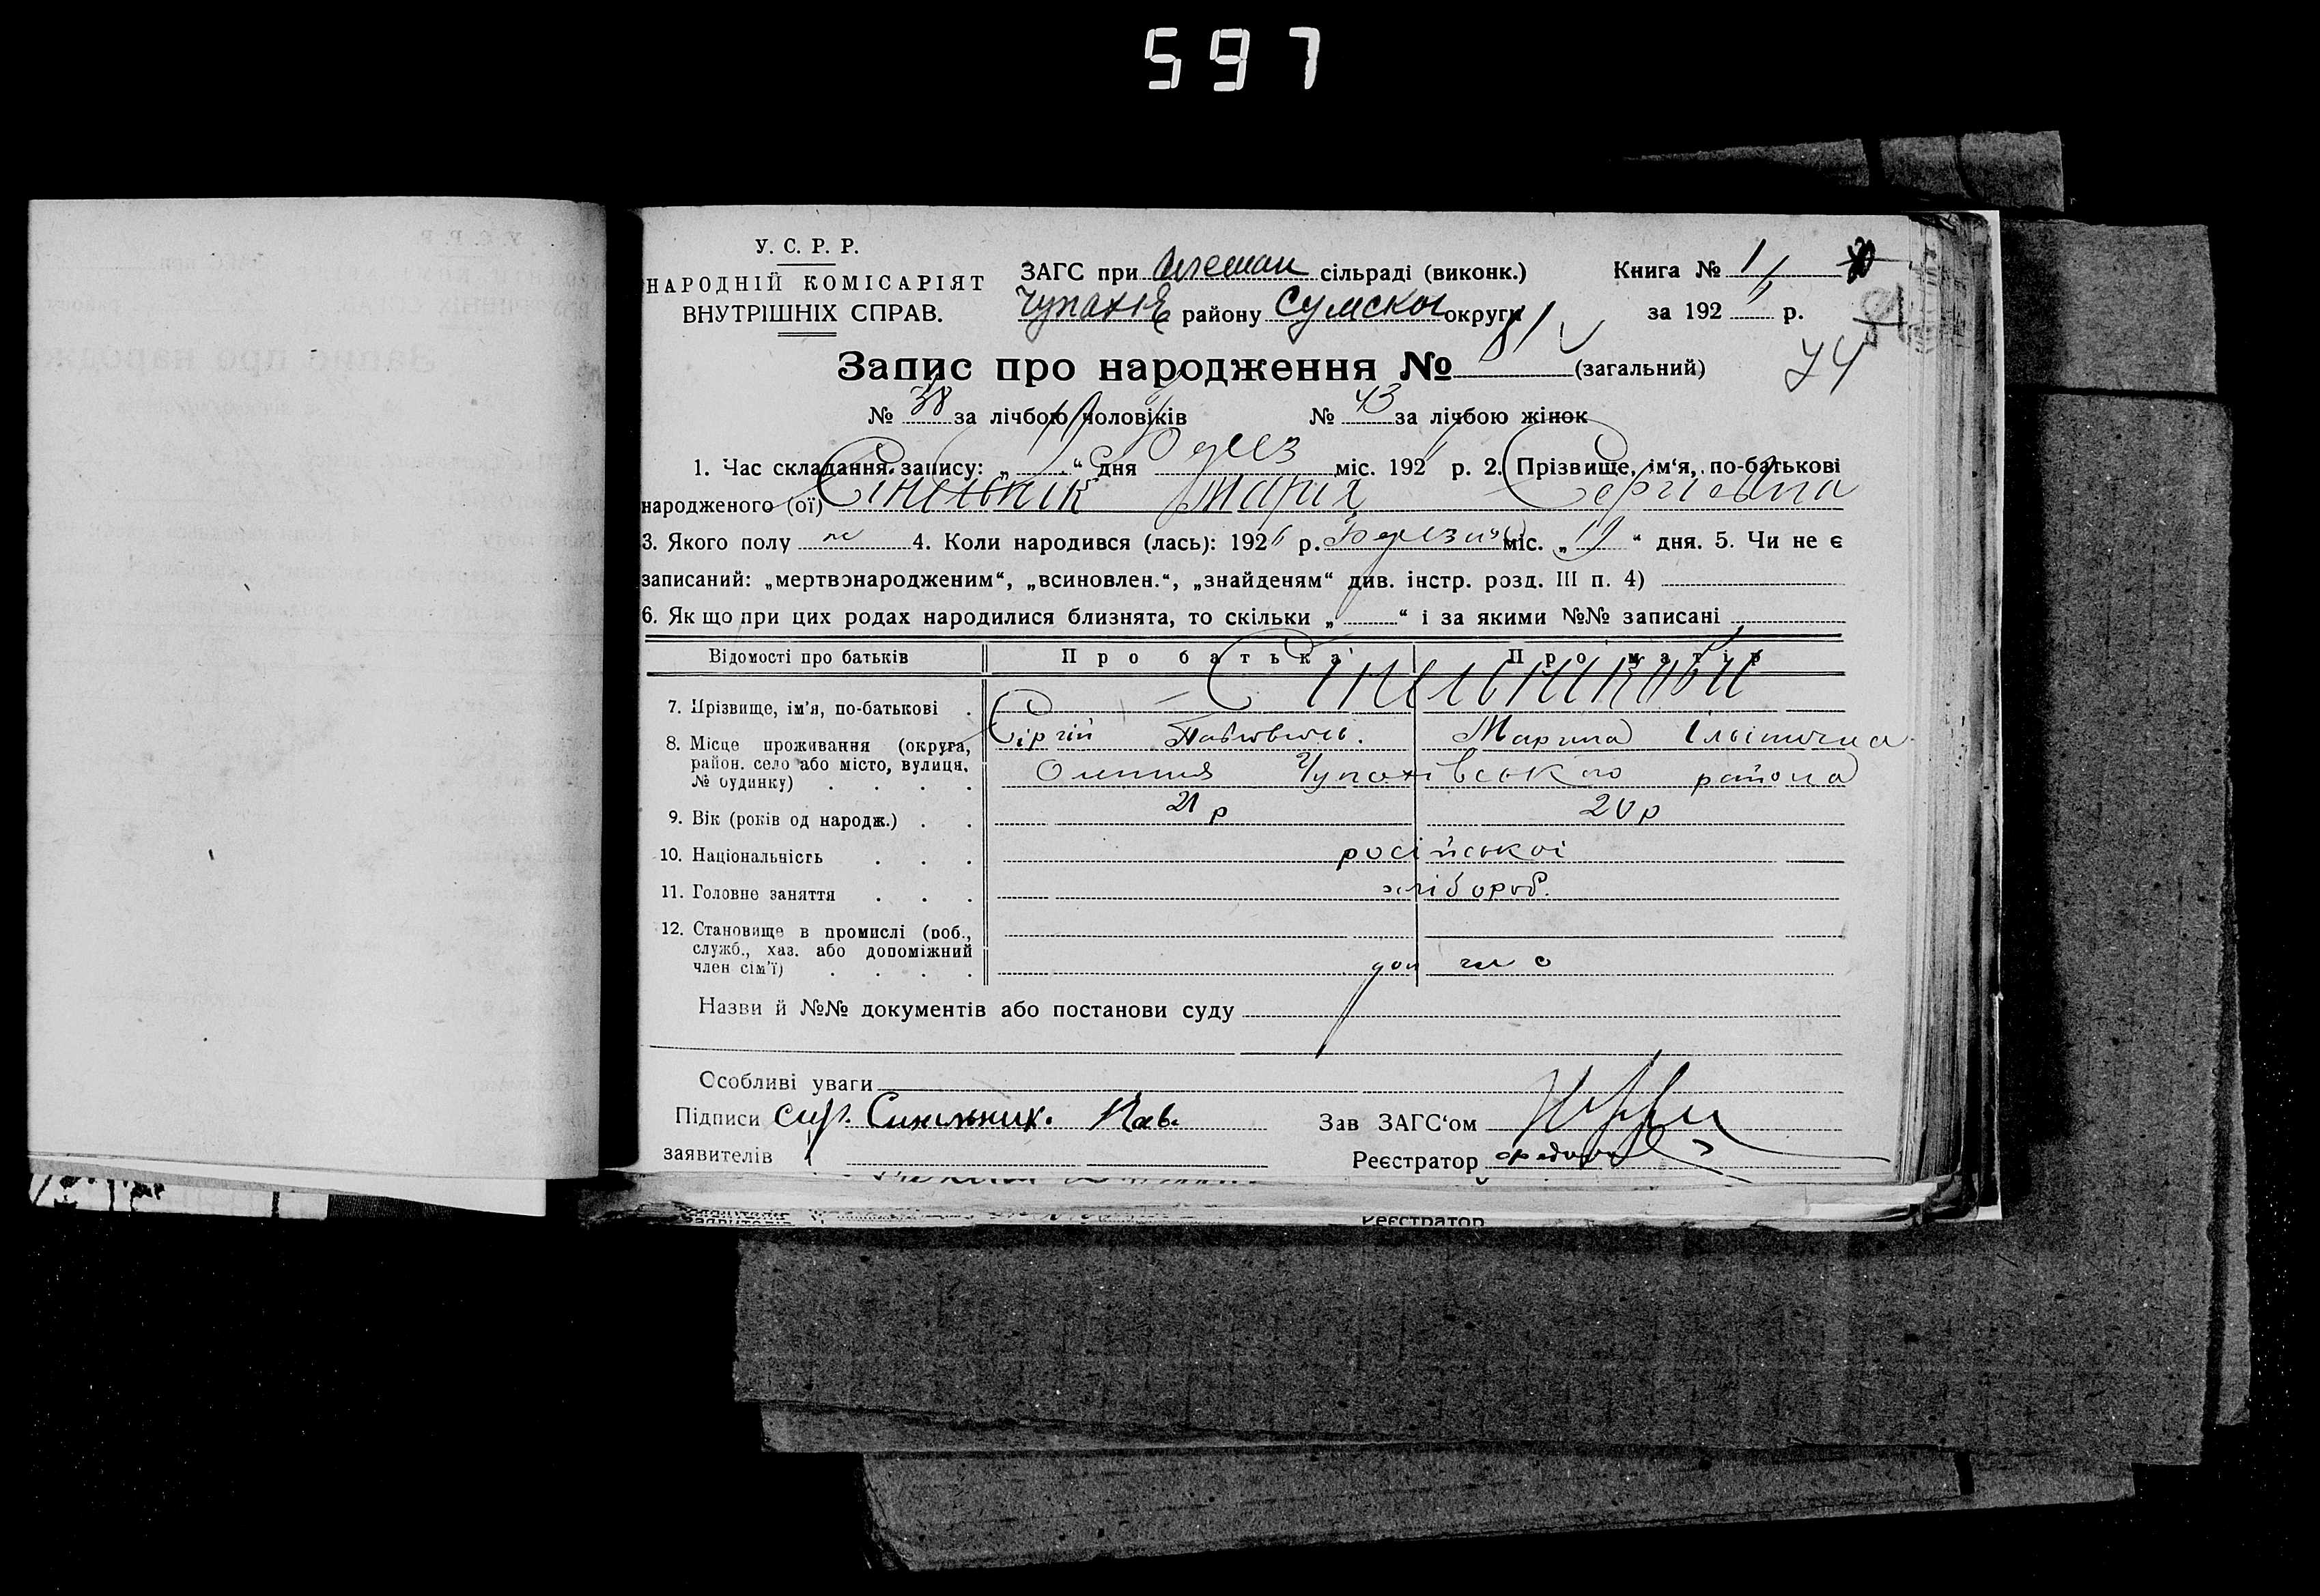 597
У. С. Р. Р.
НАРОДНІЙ КОМІСАРІЯТ
ВНУТРІШНІХ СПРАВ.
ЗАГС при сільраді (виконк.)
району Сумской округи
Книга № 1
за 192 р.
74
Запис про народження № 81 (загальний)
№ 38 за лічбою чоловіків № 43 за лічбою жінок
1. Час складання запису: „ “ дня міс. 192 р. 2. Прізвище, ім‘я, по-батькові
народженого (ої) Сінельнік Марія Сергієвна
3. Якого полу ж 4. Коли народився (лась): 192 р. Березня міс. „19“ дня. 5. Чи не є
записаний: „мертвонародженим“, „всиновлен.“, „знайденям“ див. інстр. розд. III п. 4)
6. Як що при цих родах народилися близнята, то скільки „ “ і за якими №№ записані
Відомості про батьків Про батька Про матір
Сінельникови
7. Прізвище, ім'я, по-батькові
Сергій Павлович. Марина
8. Місце проживання (округа,
район, село або місто, вулиця,
№ будинку)
Олешня Чупахівського района
9. Вік (років од народж.) 21 р 20 р
10. Національність російської
11. Головне заняття хлібороб.
12. Становище в промислі (роб.,
служб., хаз. або допоміжний
член сім'ї)
доп чл с
Назви й №№ документів або постанови суду
Особливі уваги
Підписи Синельник. Пав.
заявителів
Зав ЗАГС‘ом
Реєстратор
Реєстратор